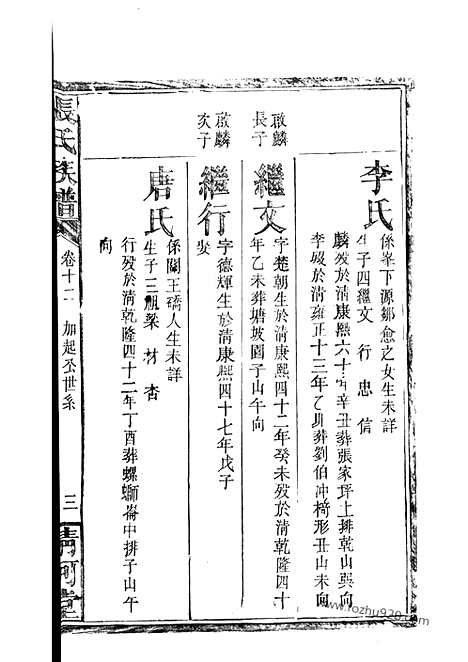 李氏
係峯下源鄒愈之女生未詳
生子四繼文 行 忠 信
麟歿於清康熙六十年辛丑葬張家坪上排乾山巽向
李歿於清雍正十三年乙卯葬劉伯冲椅形丑山未向
啟麟長子
繼文
字楚朝生於清康熙四十二年癸未歿於清乾隆四十
年乙未葬塘坡園子山午向
啟麟次子
繼行
字德輝生於清康熙四十七年戊子
娶
唐氏
係關王礄人生未詳
生子三 梁 材 杏
行歿於清乾隆四十二年丁酉葬螺螄崙中排子山午
向
張氏族譜
卷十二 加起丞世系
三
清河堂
www.rozhu920.com